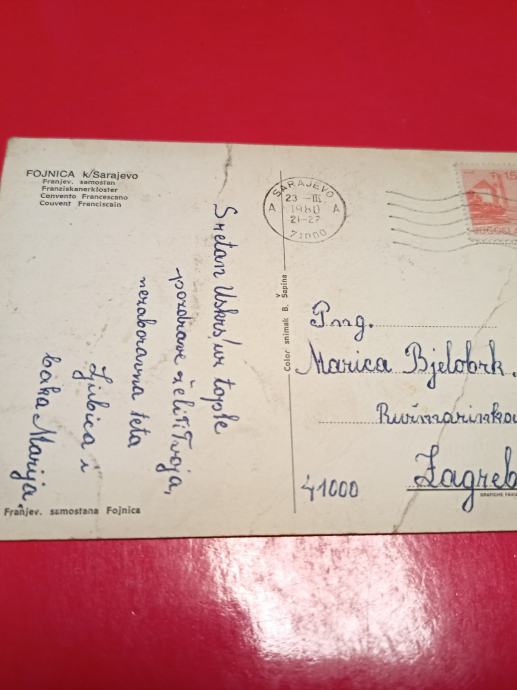 FOJNICA k/Sarajevo
Franjev. samostan
Franziskanerkloster
Convento Francescano
Couvent Franciscain
Sretan Uskrs/uz tople
pozdrave želi ti Tvoja,
nezaboravna teta
Ljubica i
baka Marija
Franjev. samostana Fojnica
Color snimak B. Šapina
SARAJEVO
A 23 -III A
1980
21-22
71000
15
JUGOSLA
Marica Bjelobrk.
Ružmarinkov
41000 Zagreb